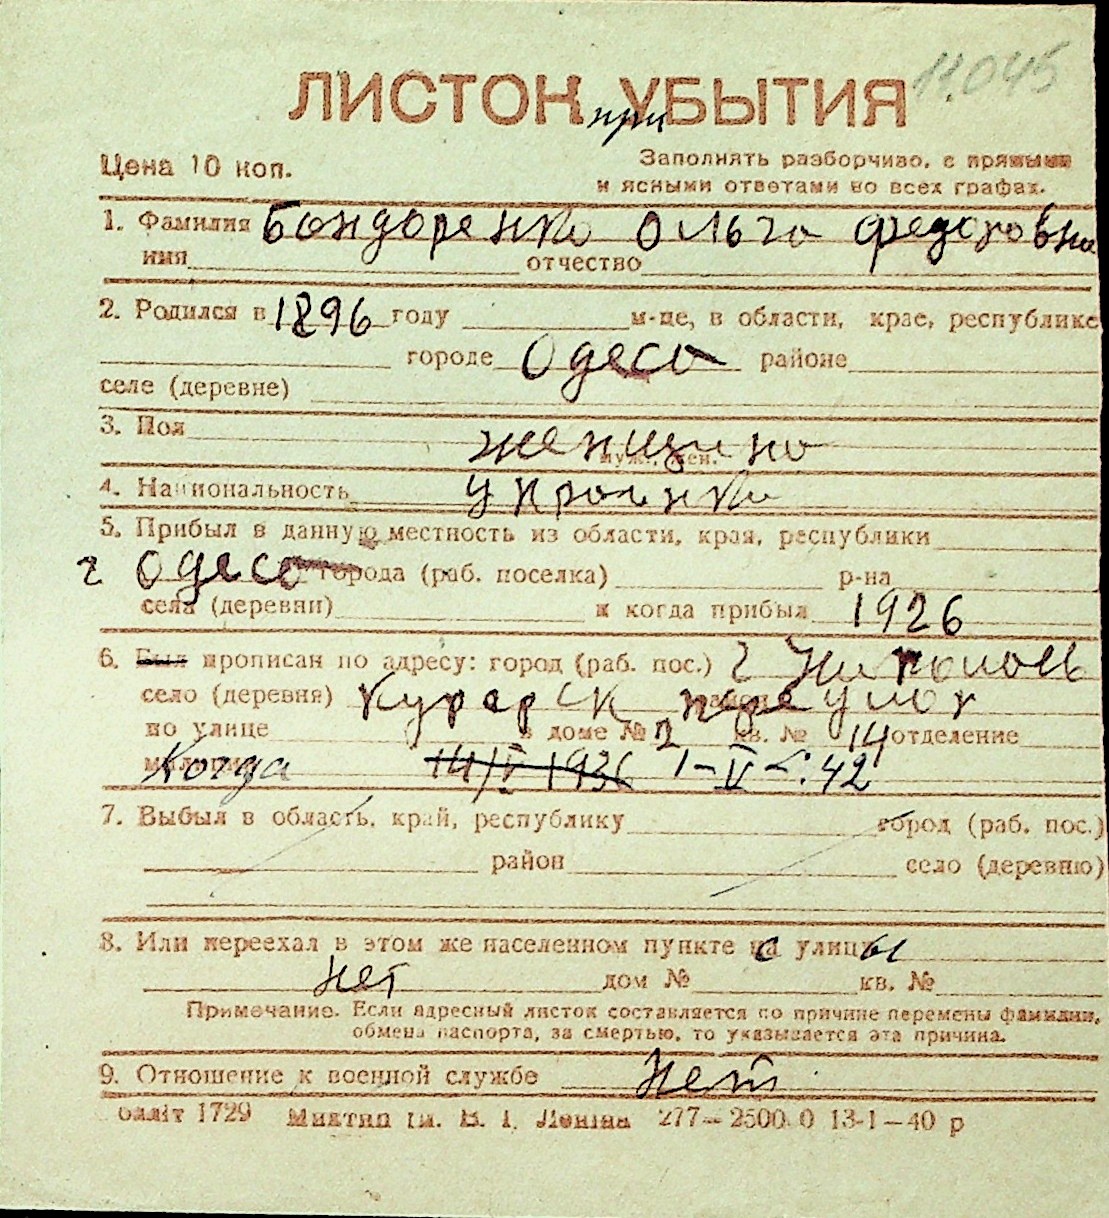 11.045
ЛИСТОК при УБЫТИЯ
Цена 10 коп.
Заполнять разборчиво, с прямыми
и ясными ответами во всех графах.
1. Фамилия Бондоренко Ольга Федоровна
имя отчество
2. Родился в 1896 году м-це, в области, крае, республике
городе Одеса районе
селе (деревне)
3. Пол женщина
муж., жен.
4. Национальность Украинка
5. Прибыл в данную местность из области, края, республики
г Одеса города (раб. поселка) р-на
села (деревни) и когда прибыл 1926
6. Был прописан по адресу: город (раб. пос.) г Никополь
село (деревня) переулок
по улице в доме № 2 кв. № 14 отделение
Когда 14/V 1936 1-V-42
7. Выбыл в область, край, республику город (раб. пос.)
район село (деревню)
8. Или переехал в этом же населенном пункте с улицы
нет дом № кв. №
Примечание. Если адресный листок составляется по причине перемены фамилии,
обмена паспорта, за смертью, то указывается эта причина.
9. Отношение к военной службе Нет
облліт 1729 ім. В. І. Леніна 277—2500 0 13-1—40 р